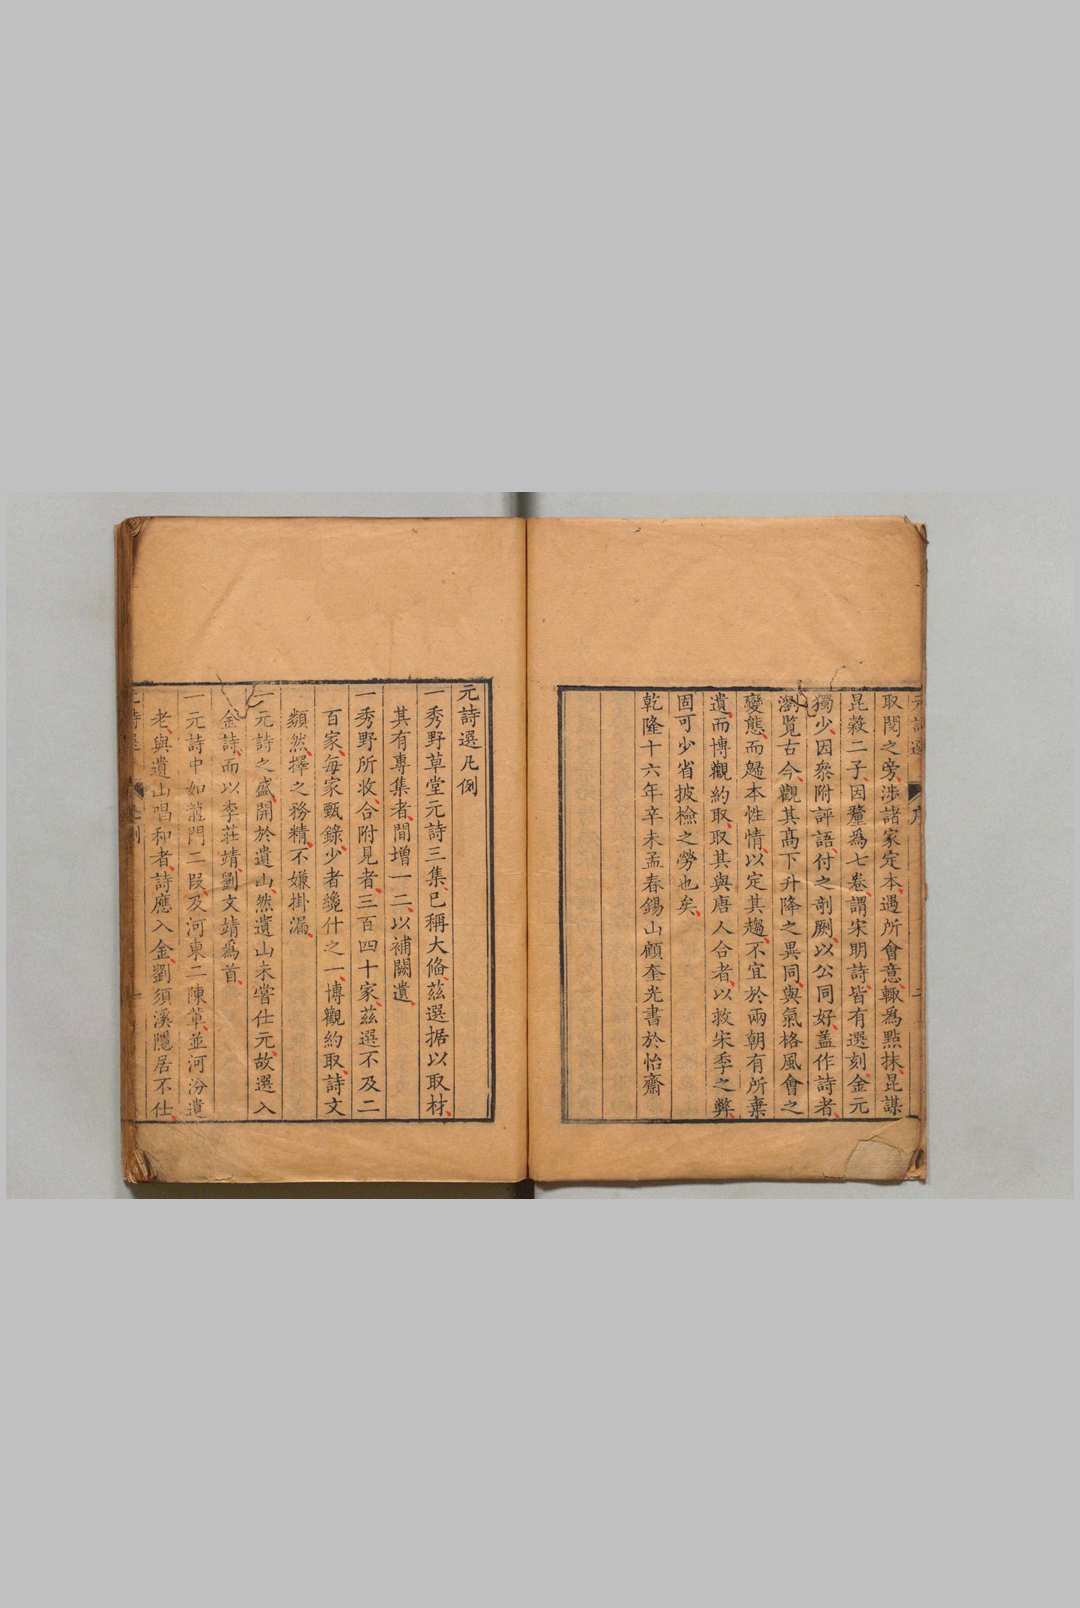 取閱之旁涉諸家定本遇所會意輙爲點抹昆謀
昆穀二子因釐爲七卷謂宋明詩皆有選刻金元
獨少因衆附評語付之剞劂以公同好葢作詩者
瀏覽古今觀其高下升降之異同與氣格風會之
變態而歸本性情以定其趨不宜於兩朝有所棄
遺而博觀約取取其與唐人合者以救宋季之弊
固可少省披檢之勞也矣
乾隆十六年辛未孟春錫山顧奎光書於怡齋
元詩選凡例
一秀野草堂元詩三集已稱大備茲選据以取材
其有專集者間增一二以補闕遺
一秀野所收合附見者三百四十家茲選不及二
百家每家甄錄少者纔什之一博觀約取詩文
類然擇之務精不嫌掛漏
一元詩之盛開於遺山然遺山未嘗仕元故選入
金詩而以李莊靖劉文靖爲首
一元詩中如龍門二段及河東二陳軰並河汾遺
老與遺山唱和者詩應入金劉須溪隱居不仕